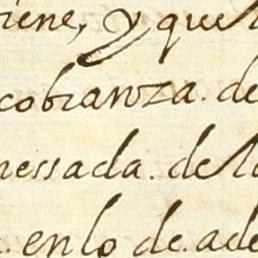 iene, y que
cobranza. de
nessada. de l
. en lo de. ade